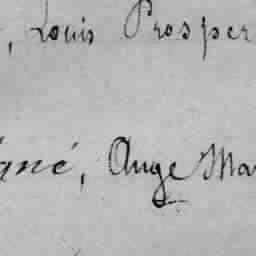 , Louis Prosper
gné, Ange Mar